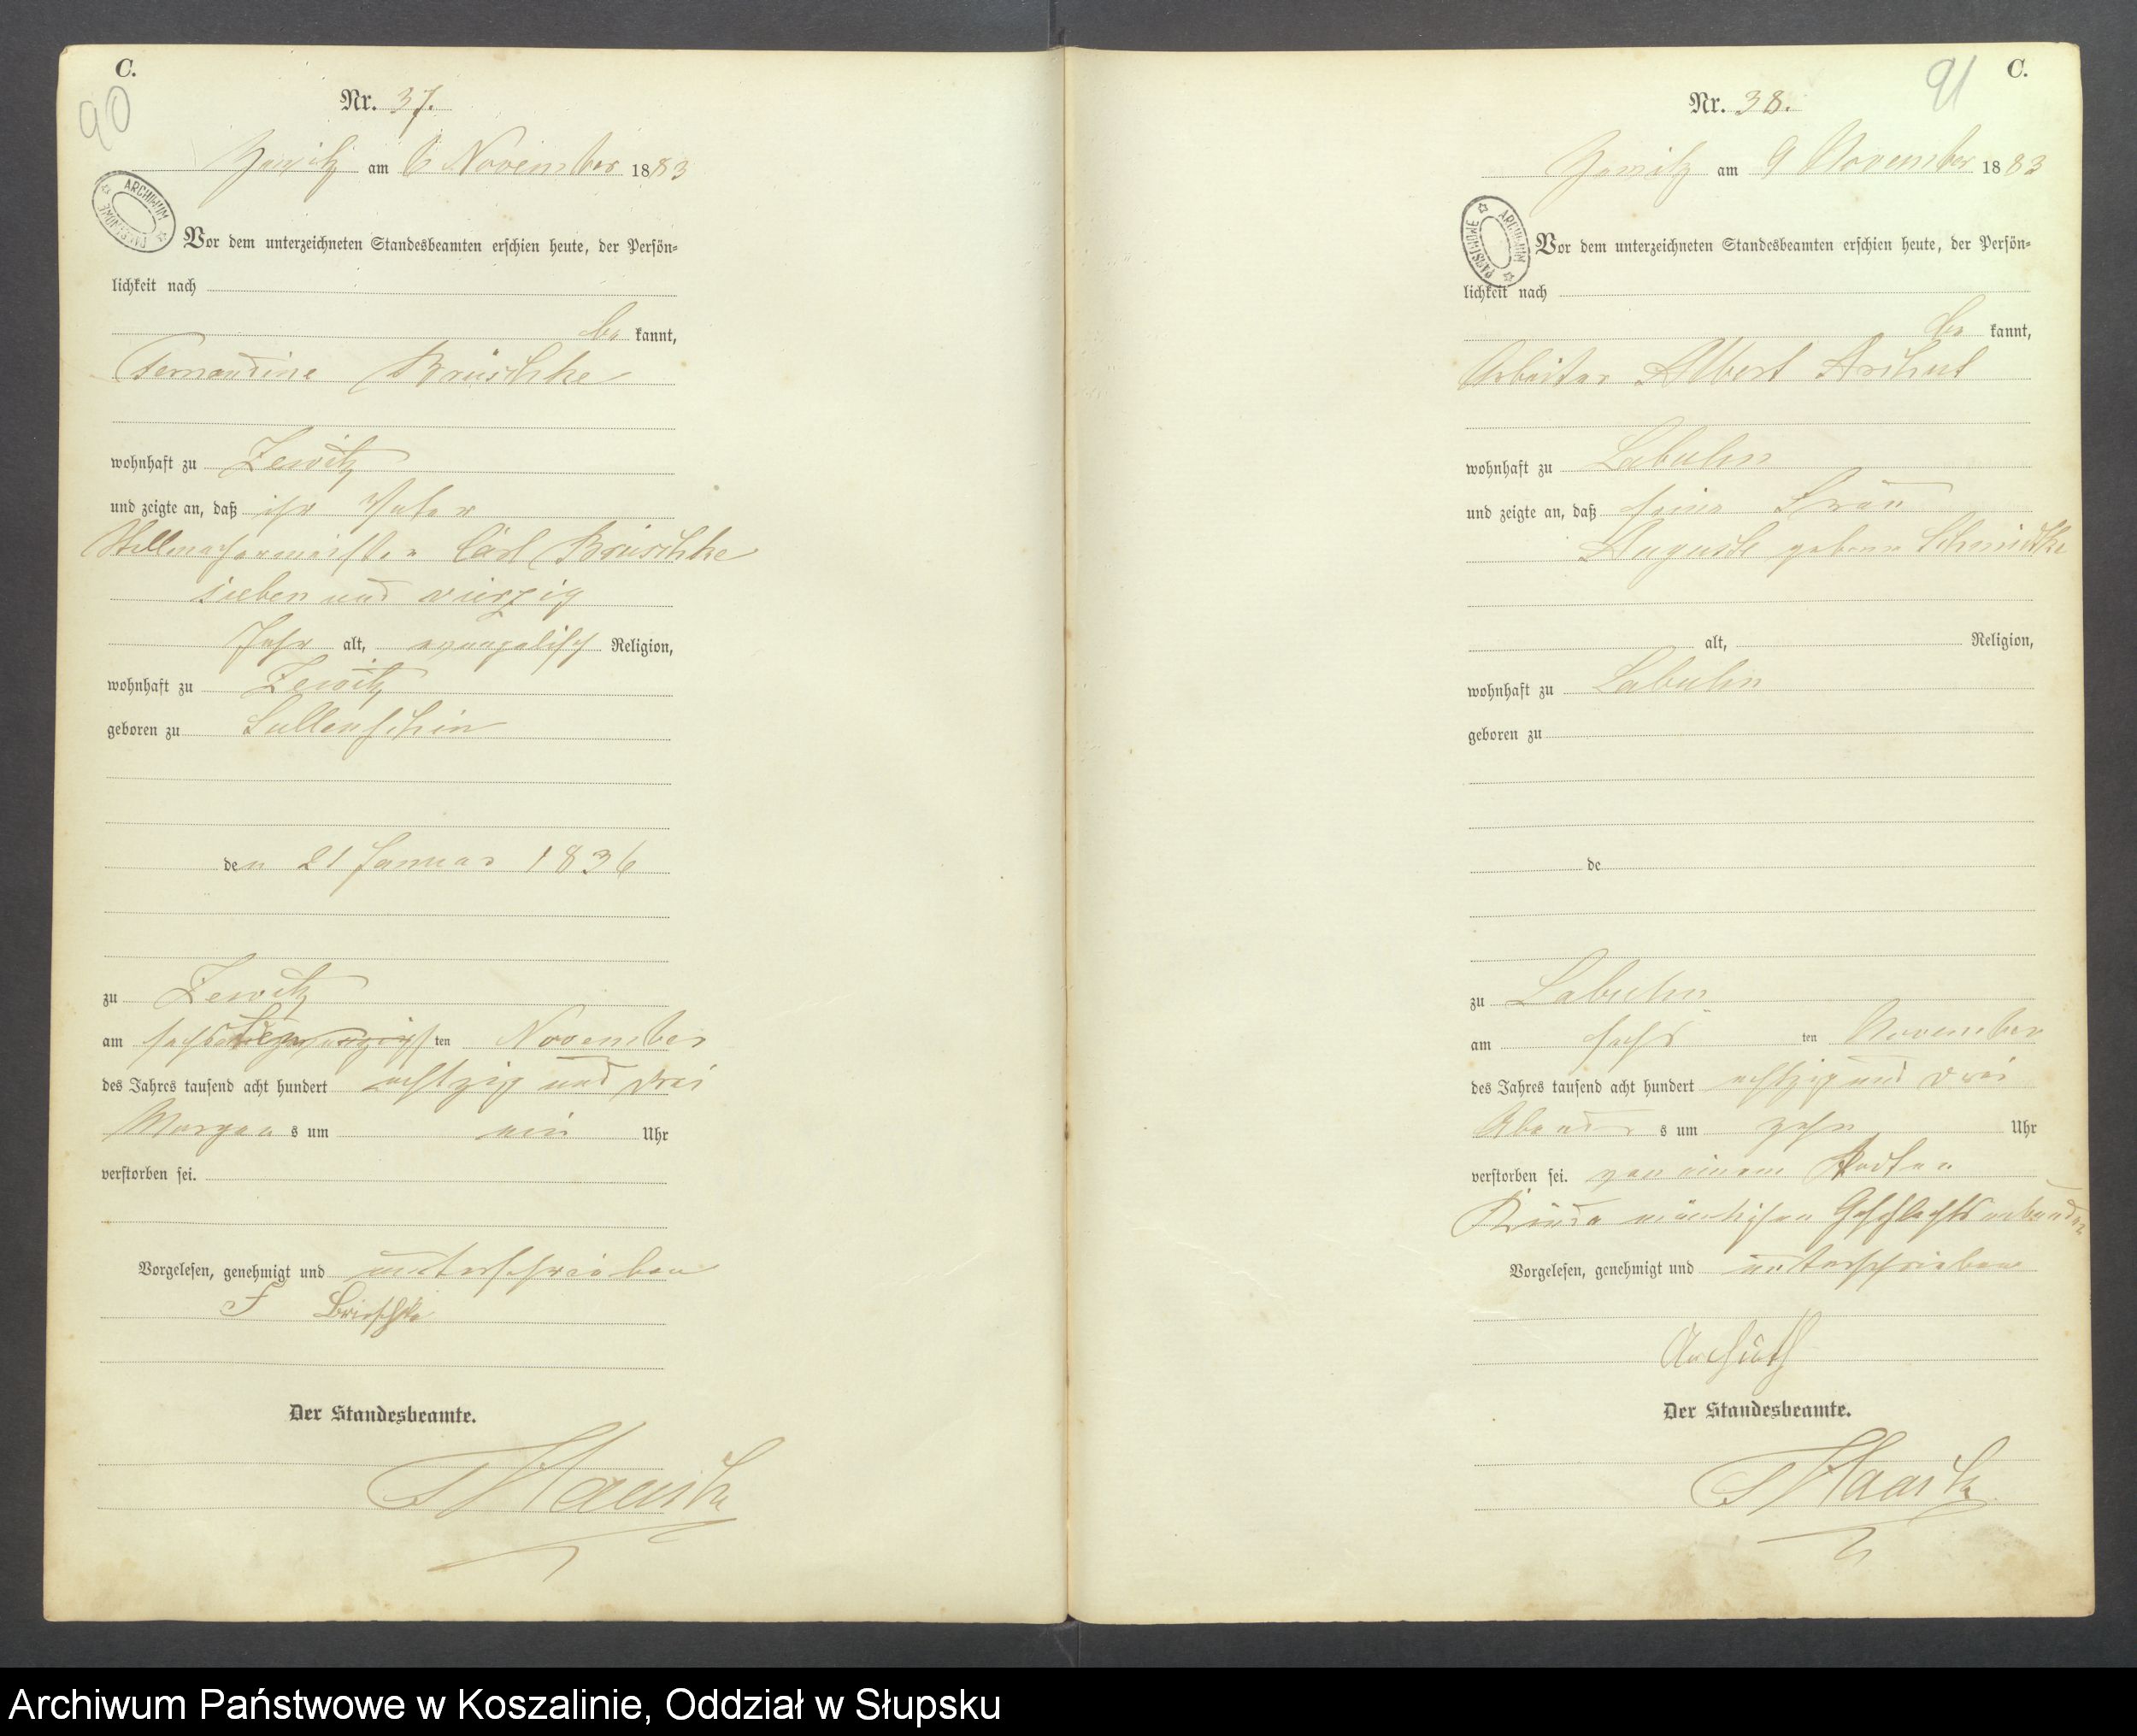 C.
90
Nr. 37.
Zewitz am 6 November 1883
ARCHIWUM PAŃSTWOWE
Vor dem unterzeichneten Standesbeamten erschien heute, der Persön=
lichkeit nach
be kannt,
Fernandine Brüschke
wohnhaft zu Zewitz
und zeigte an, daß ihr Vater
Carl Brüschke
sieben und vierzig
Jahr alt, evangelisch Religion,
wohnhaft zu Zewitz
geboren zu Sullenschin
den 21 Januar 1836
zu Zewitz
am sechsten ten November
des Jahres tausend acht hundert achtzig und drei
Morgen s um ein Uhr
verstorben sei.
Vorgelesen, genehmigt und unterschrieben
F Brischke
Der Standesbeamte.
C.
91
Nr. 38.
Zewitz am 9 November 1883
ARCHIWUM PAŃSTWOWE
Vor dem unterzeichneten Standesbeamten erschien heute, der Persön=
lichkeit nach
be kannt,
Arbeiter Albert Archut
wohnhaft zu Labuhn
und zeigte an, daß seine Frau
Auguste geborne Schmidtke
alt, Religion,
wohnhaft zu Labuhn
geboren zu
de
zu Labuhn
am sechs ten November
des Jahres tausend acht hundert achtzig und drei
Abend s um zehn Uhr
verstorben sei. von einem todten
Kinde männlichen Geschlechts entbunden
Vorgelesen, genehmigt und unterschrieben
Archuth
Der Standesbeamte.
Archiwum Państwowe w Koszalinie, Oddział w Słupsku